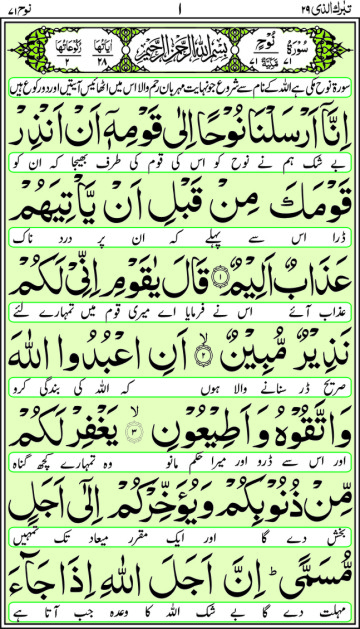 تبٰرك الذی ٢٩ ١ نوح ٧١
سُوْرَةُ ٧١ نُوْحٍ مَّكِّيَّةٌ ٧١ بِسْمِ اللهِ الرَّحْمٰنِ الرَّحِيْمِ اٰيَاتُهَا ٢٨ رُكُوْعَاتُهَا ٢
سورۃ نوح مکی ہے اللہ کے نام سے شروع جو نہایت مہربان رحم والا اس میں اٹھائیس آیتیں اور دو رکوع ہیں
اِنَّاۤ اَرْسَلْنَا نُوْحًا اِلٰى قَوْمِهٖۤ اَنْ اَنْذِرْ
بے شک ہم نے نوح کو اس کی قوم کی طرف بھیجا کہ ان کو
قَوْمَكَ مِنْ قَبْلِ اَنْ يَّاْتِيَهُمْ
ڈرا اس سے پہلے کہ ان پر درد ناک
عَذَابٌ اَلِيْمٌ ۝١ قَالَ يٰقَوْمِ اِنِّيْ لَكُمْ
عذاب آئے اس نے فرمایا اے میری قوم میں تمہارے لئے
نَذِيْرٌ مُّبِيْنٌ ۝٢ۙ اَنِ اعْبُدُوا اللّٰهَ
صریح ڈر سنانے والا ہوں کہ اللہ کی بندگی کرو
وَاتَّقُوْهُ وَاَطِيْعُوْنِ ۝٣ۙ يَغْفِرْ لَكُمْ
اور اس سے ڈرو اور میرا حکم مانو وہ تمہارے کچھ گناہ
مِّنْ ذُنُوْبِكُمْ وَيُؤَخِّرْكُمْ اِلٰۤى اَجَلٍ
بخش دے گا اور ایک مقرر میعاد تک تمہیں
مُّسَمًّى ؕ اِنَّ اَجَلَ اللّٰهِ اِذَا جَآءَ
مہلت دے گا بے شک اللہ کا وعدہ جب آتا ہے